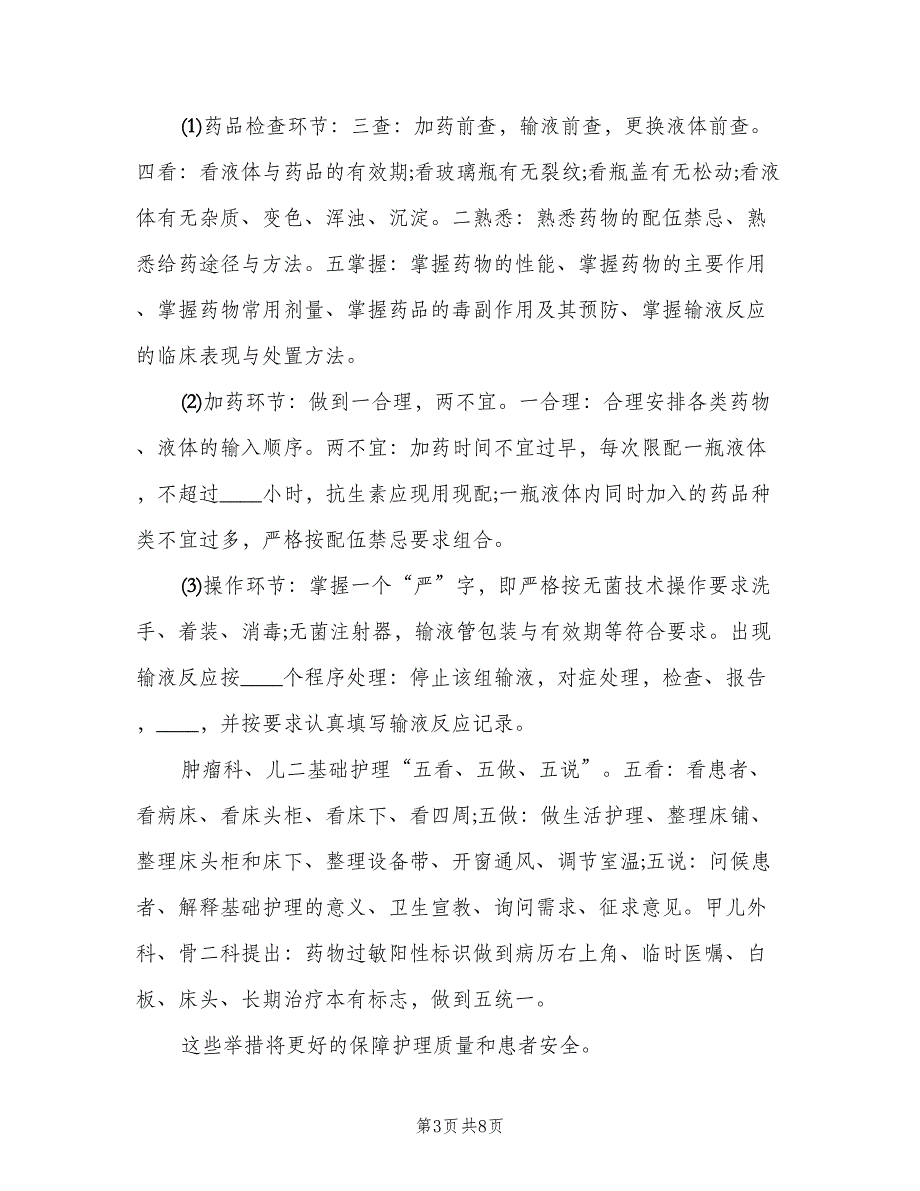 (1)药品检查环节：三查：加药前查，输液前查，更换液体前查。
四看：看液体与药品的有效期;看玻璃瓶有无裂纹;看瓶盖有无松动;看液
体有无杂质、变色、浑浊、沉淀。二熟悉：熟悉药物的配伍禁忌、熟
悉给药途径与方法。五掌握：掌握药物的性能、掌握药物的主要作用
、掌握药物常用剂量、掌握药品的毒副作用及其预防、掌握输液反应
的临床表现与处置方法。
(2)加药环节：做到一合理，两不宜。一合理：合理安排各类药物
、液体的输入顺序。两不宜：加药时间不宜过早，每次限配一瓶液体
，不超过____小时，抗生素应现用现配;一瓶液体内同时加入的药品种
类不宜过多，严格按配伍禁忌要求组合。
(3)操作环节：掌握一个“严”字，即严格按无菌技术操作要求洗
手、着装、消毒;无菌注射器，输液管包装与有效期等符合要求。出现
输液反应按____个程序处理：停止该组输液，对症处理，检查、报告
，____，并按要求认真填写输液反应记录。
肿瘤科、儿二基础护理“五看、五做、五说”。五看：看患者、
看病床、看床头柜、看床下、看四周;五做：做生活护理、整理床铺、
整理床头柜和床下、整理设备带、开窗通风、调节室温;五说：问候患
者、解释基础护理的意义、卫生宣教、询问需求、征求意见。甲儿外
科、骨二科提出：药物过敏阳性标识做到病历右上角、临时医嘱、白
板、床头、长期治疗本有标志，做到五统一。
这些举措将更好的保障护理质量和患者安全。
第3页 共8页